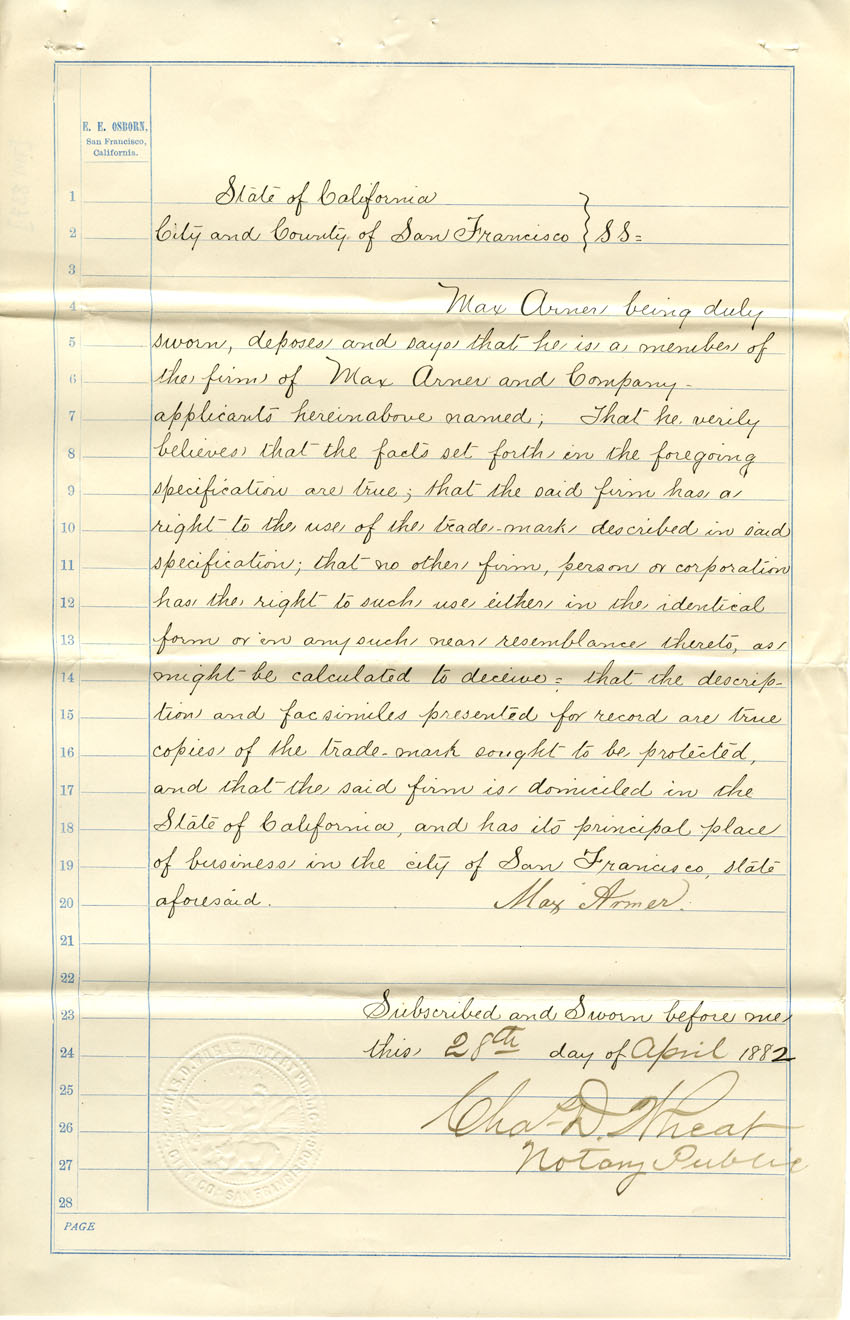 E. E. OSBORN,
San Francisco,
California.
1 State of California
2 City and County of San Francisco } SS=
3
4 Max Armer being duly
5 sworn, deposes and says that he is a member of
6 the firm of Max Armer and Company-
7 applicants hereinabove named; That he verily
8 believes that the facts set forth in the foregoing
9 specification are true; that the said firm has a
10 right to the use of the trade-mark described in said
11 specification; that no other firm, person or corporation
12 has the right to such use either in the identical
13 form or in any such near resemblance thereto, as
14 might be calculated to deceive= that the descrip-
15 tion and facsimiles presented for record are true
16 copies of the trade-mark sought to be protected,
17 and that the said firm is domiciled in the
18 State of California, and has its principal place
19 of business in the city of San Francisco, state
20 aforesaid. Max Armer.
21
22
23 Subscribed and Sworn before me
24 this 28th day of April 1882
25
26 Chas D. Wheat
27 Notary Public
28
PAGE
CHAS. D. WHEAT NOTARY PUBLIC
CITY & CO. SAN FRANCISCO